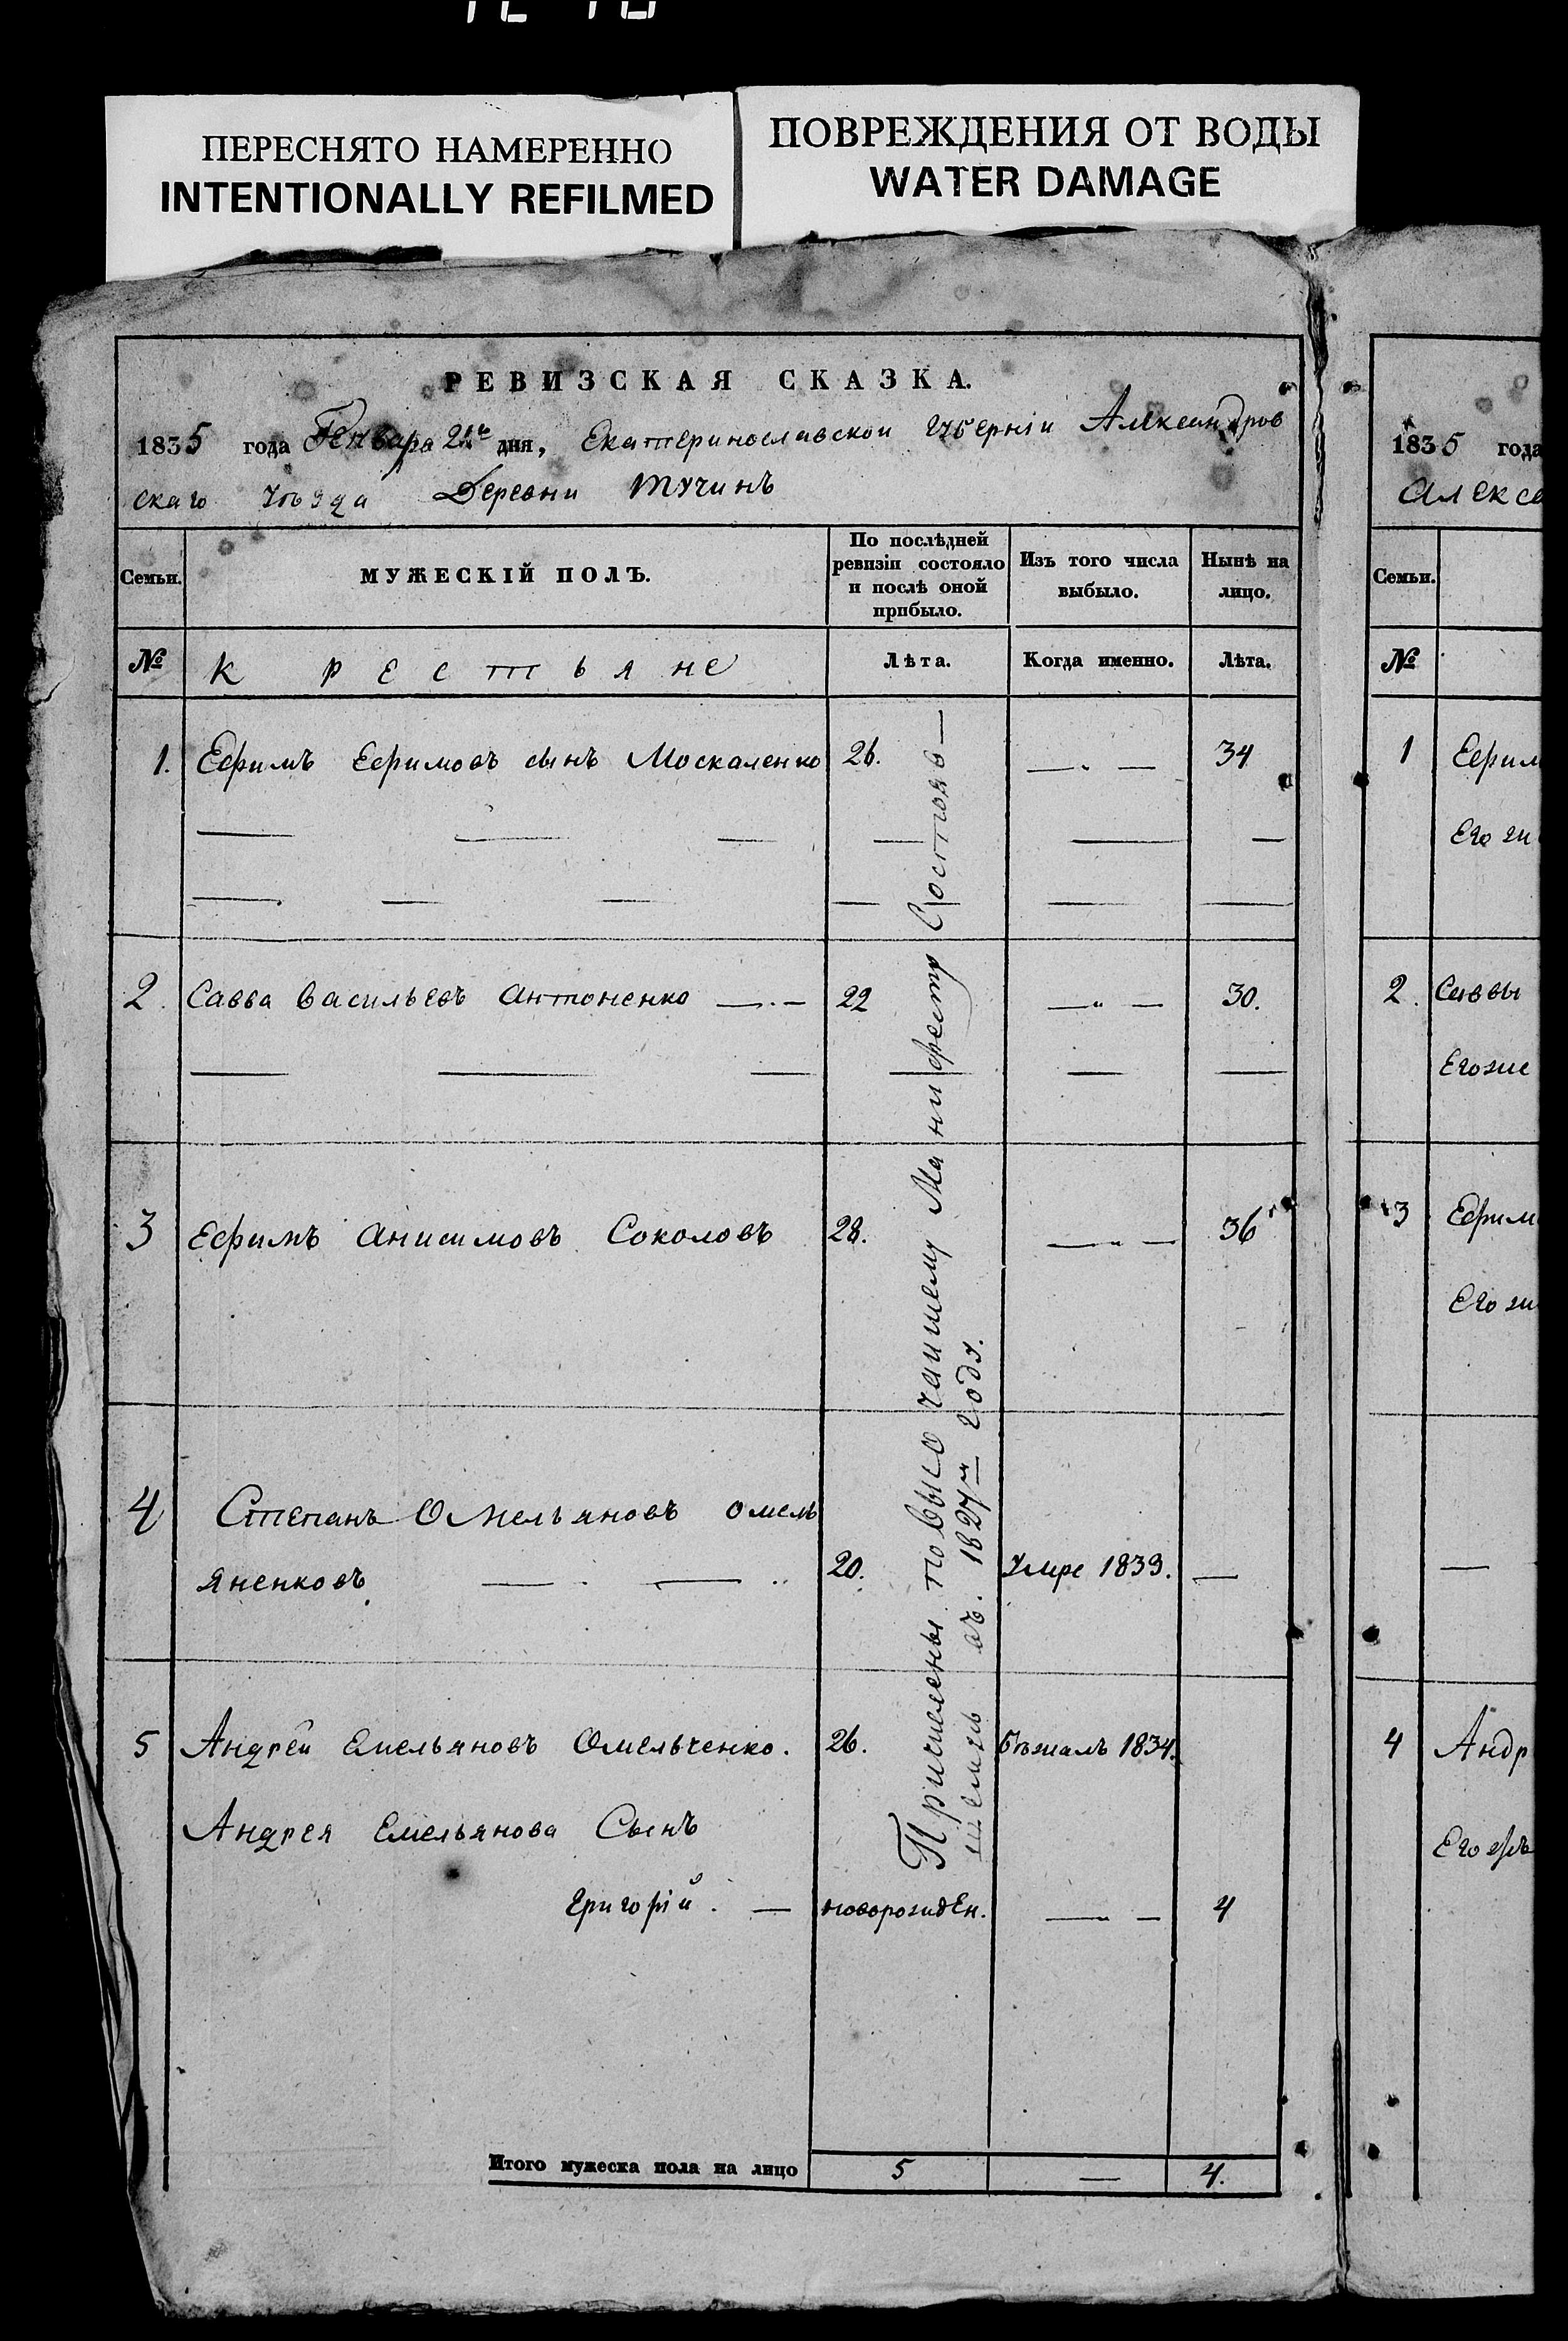 ПЕРЕСНЯТО НАМЕРЕННО
INTENTIONALLY REFILMED
ПОВРЕЖДЕНИЯ ОТ ВОДЫ
WATER DAMAGE
РЕВИЗСКАЯ СКАЗКА.
1835 года Генваря дня, Екатеринославской губерніи Александров
скаго уѣзда Деревни Тучинъ
Семьи. МУЖЕСКІЙ ПОЛЪ. По послѣдней ревизіи состояло и послѣ оной прибыло. Изъ того числа выбыло. Нынѣ на лицо.
№ Крестьяне Лѣта. Когда именно. Лѣта.
1. Ефимъ Ефимовъ сынъ Москаленко 26. — „ — 34
2. Савва Васильевъ Антоненко — 22 — „ — 30.
3 Ефимъ Анисимовъ Соколовъ 28. — „ — 36
4 Степанъ Омельяновъ Омель
яненковъ 20. Умре 1833. —
5 Андрей Емельяновъ Омельченко. 26. Бѣжалъ 1834.
Андрея Емельянова Сынъ
Григорій. — новорожден. — „ — 4
Причислены по Высочайшему Манифесту Состояв—
шемусь въ 1827м году.
Итого мужеска пола на лицо 5 — 4.
1835 года
Алексе
Семьи.
№
1 Ефим
Его
2. Саввы
Его же
3 Ефим
Его
—
4 Андр
Его